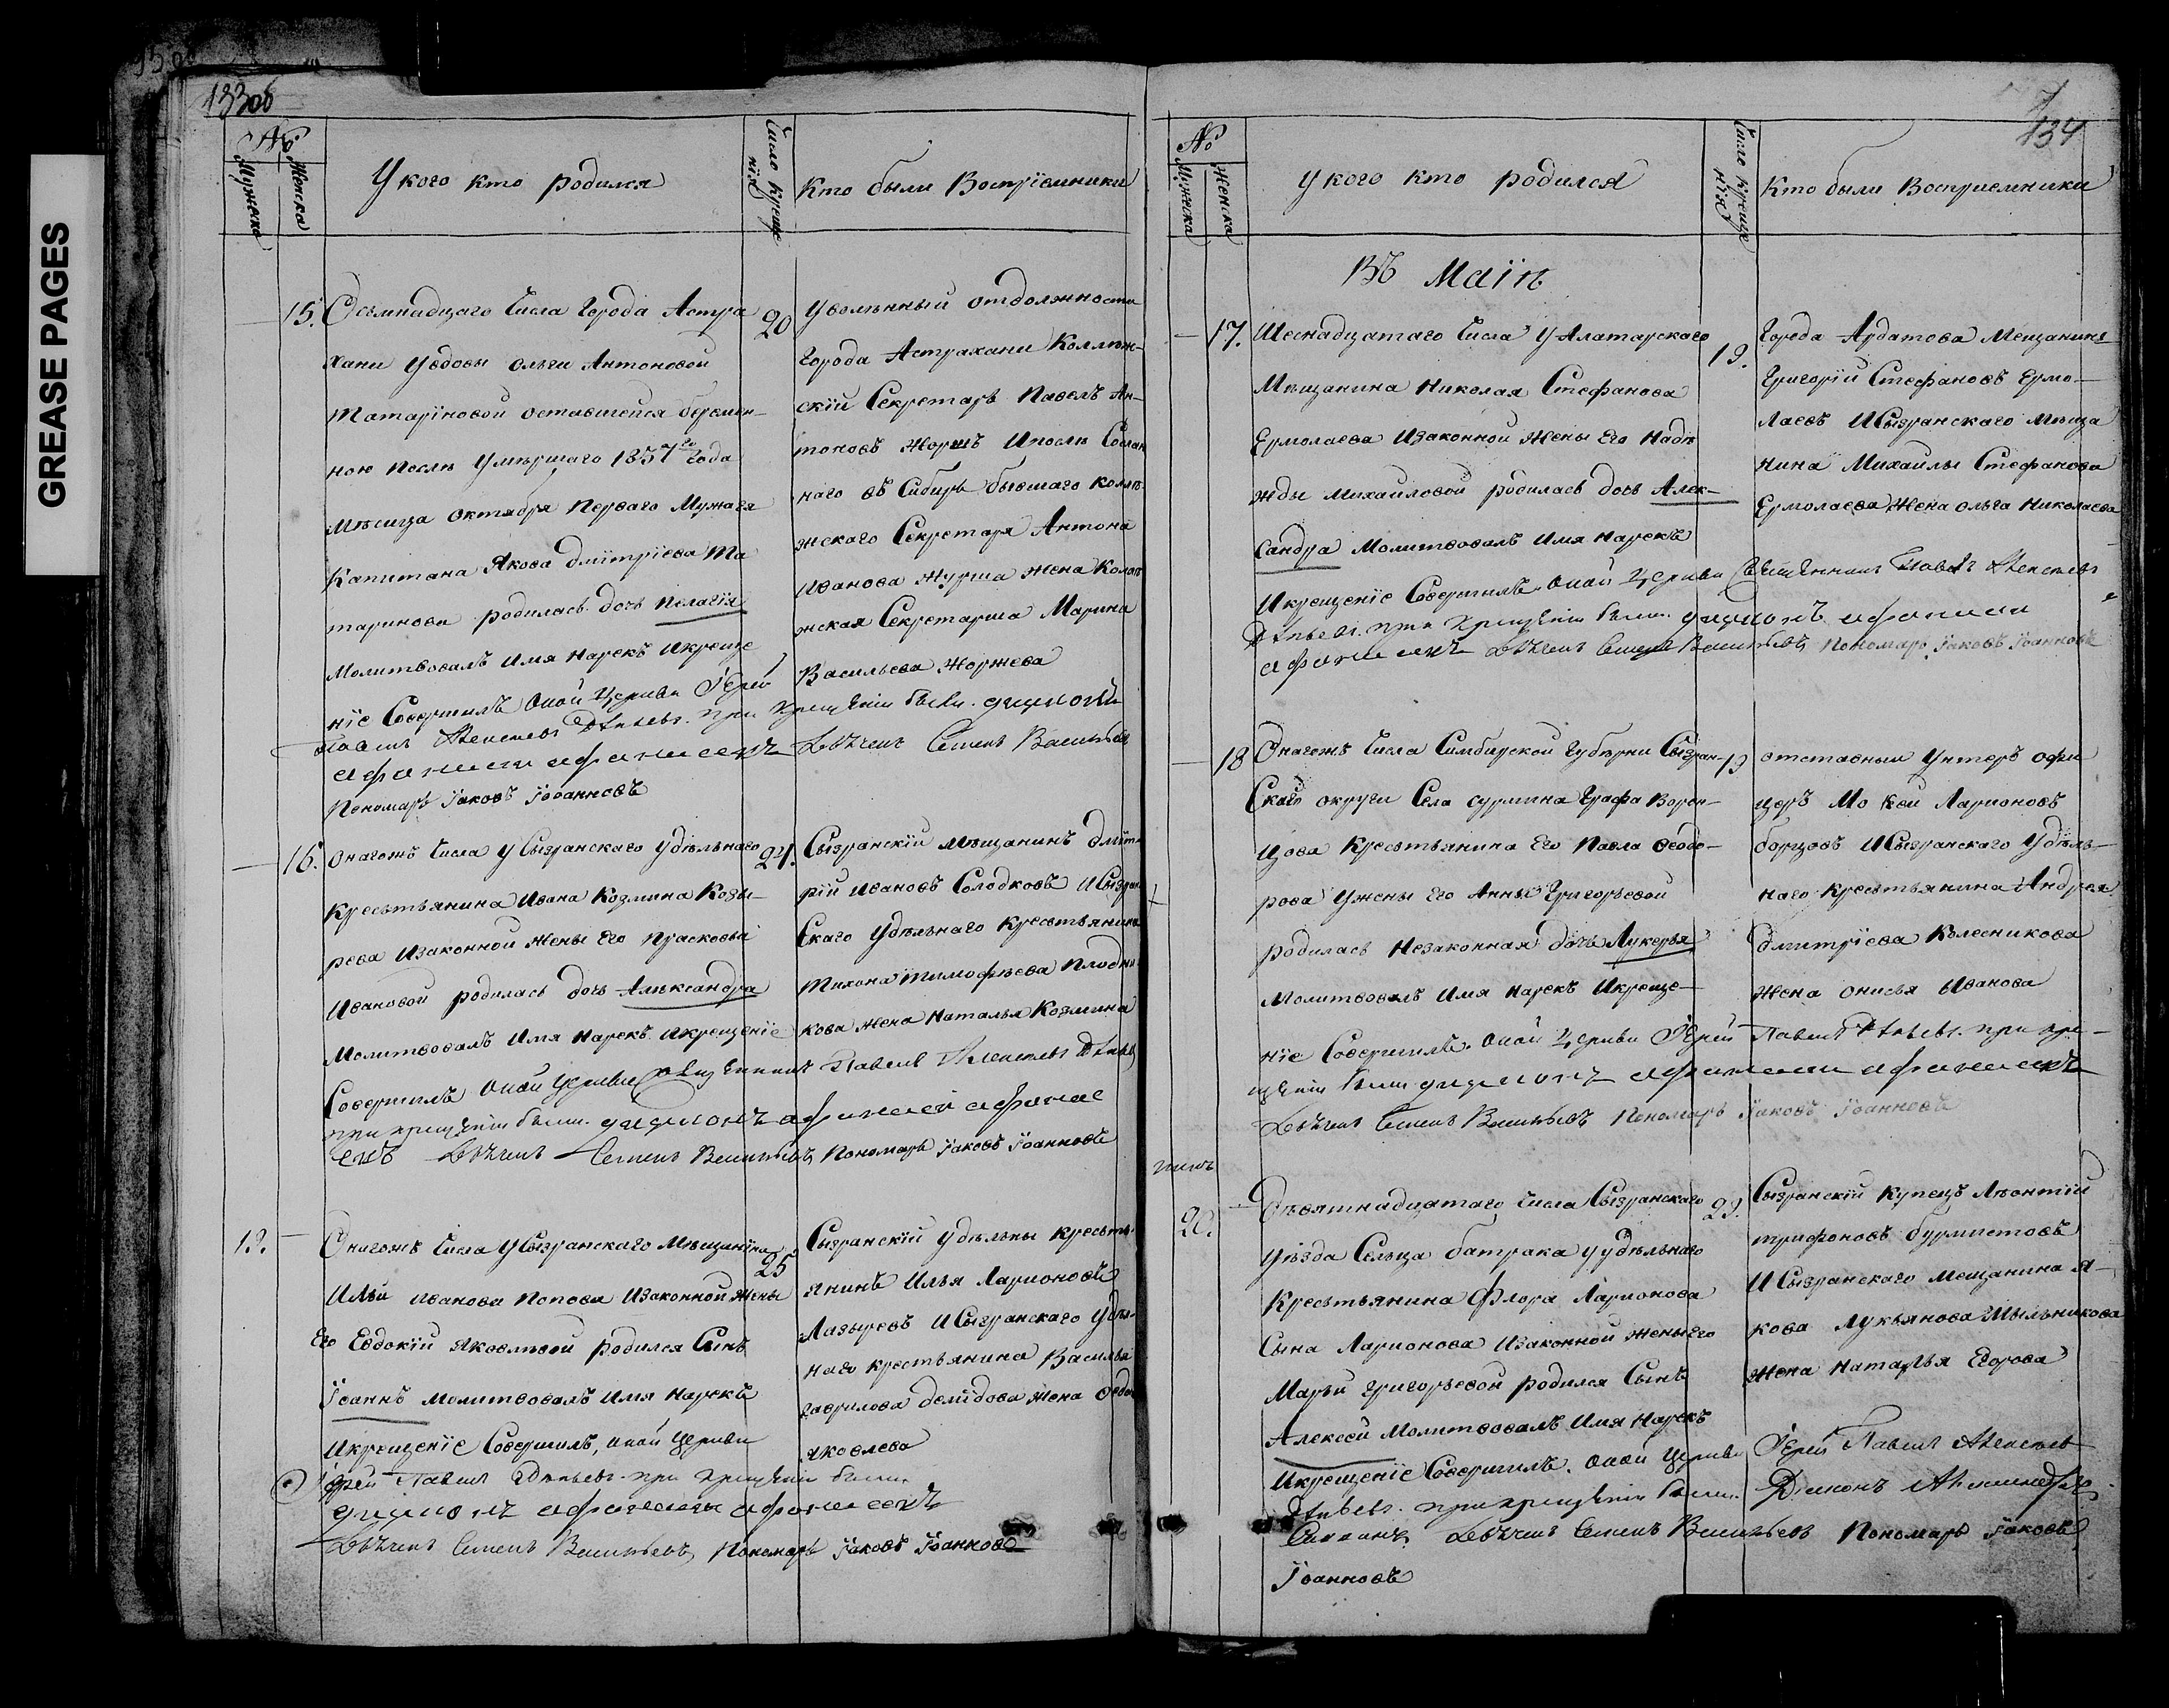 GREASE PAGES
133об
№
Мужеска
Женска
У кого кто родился
Число крещения
Кто были Восприемники
15.
Осемнадцаго Числа Города Астра
хани Увдовы Ольги Антоновой
Татарïновой оставшейся беремен-
ною После Умершаго 1837го Года
Месяца Октября Перваго Мужа ея
Капитана Якова Дмïтрïева Та
таринова родилась дочь Пелагïя
Молитвовалъ Имя Нарекъ Икреще
нïе Совершилъ Оной Церкви Iерей
Павелъ Алексеевъ при крещенiи были Дiаконъ
Афанасiй Афанасьевъ Дьячекъ Семенъ Васильевъ
Пономарь Iаковъ Iоанновъ
20
Уволенный отдолжности
Города Астрахани Коллеж-
скïй Секретарь Павелъ Ан-
тоновъ Жоржъ Ипосле Сослан
наго въ Сибирь бывшаго Колле-
жскаго Секретаря Антона
Иванова Журжа жена Колле
жская Секретарша Марина
Васильева Жоржева
16.
Онагожъ Числа УСызранскаго Удельнаго
Крестьянина Ивана Козмина Козы-
рева Изаконной жены Его Прасковьи
Ивановой родилась дочь Александра
Молитвовалъ Имя Нарекъ Икрещенïе
Совершилъ Оной Церкви Священникъ Павелъ Алексеевъ
при крещенiи были Дiаконъ Афанасiй Афанась
евъ Дьячекъ Семенъ Васильевъ Пономарь Iаковъ Iоанновъ
24.
Сызранскïй Мещанинъ Дмït-
рïй Ивановъ Солодковъ ИСызран
Скаго Удельнаго Крестьянина
Тихона Тимофеева Плодни
кова жена Наталья Козмина
13.
Онагожъ Числа УСызранскаго Мещанина
Ильи Иванова Попова Изаконной жены
Его Евдокïи Яковлевой родился Сынъ
Iоаннъ Молитвовалъ Имя Нарекъ
Икрещенïе Совершилъ, Оной Церкви
Iерей Павелъ при крещенiи были
Дiаконъ Афанасiй Афанасьевъ
Дьячекъ Семенъ Васильевъ Пономарь Iаковъ Iоанновъ
25
Сызранскïй Удельны Кресть-
янинъ Илья Ларионовъ
Лазыревъ ИСызранскаго Удель-
наго крестьянина Василья
Гаврилова Демïдова жена
Яковлева
134
№
Мужеска
Женска
У кого кто родился
Число крещения
Кто были Восприемники
Въ Маïѣ
17.
Шеснадцатаго Числа У Алатарскаго
Мещанина Николая Стефанова
Ермолаева Изаконной Жены Его Наде
жды Михайловой родилась дочь Алек-
сандра Молитвовалъ Имя Нарекъ
Икрещенïе Совершилъ Оной Церкви Священникъ Павелъ Алексеевъ
при крещенiи были Дiаконъ Афанасiй
Афанасьевъ Дьячекъ Семенъ Васильевъ Пономарь Iаковъ Iоанновъ
19.
Города Ардатова Мещанинъ
Григорïй Стефановъ Ермо-
лаевъ ИСызранскаго Меща
нина Михайлы Стефанова
Ермолаева Жена Ольга Николаева
18
Онагожъ Числа Симбирской Губерни Сызран-
Скаго округи Села Сурмина Графа Ворон-
цова Крестьянина Его Павла Федо-
рова Ужены Его Анны Григорьевой
родилась Незаконная дочь Лукерья
Молитвовалъ Имя Нарекъ Икреще-
нïе Совершилъ. Оной Церкви Iерей Павелъ при кре-
щенiи были Дiаконъ Афанасiй Афанасьевъ
Дьячекъ Семенъ Васильевъ Пономарь Iаковъ Iоанновъ
19
отставный Унтеръ офи
церъ Мо кей Ларионовъ
борцовъ ИСызранскаго Удель-
наго крестьянина Андрея
Дмитрïева Колесникова
Жена Онисья Иванова
20.
Девятнадцатаго Числа Сызранскаго
Уезда Сельца батрака у удельнаго
Крестьянина Флора Ларионова
Сына Ларионова Изаконной жены Его
Марьи Григорьевой родился Сынъ
Алексей Молитвовалъ Имя Нарекъ
Икрещенïе Совершилъ. Оной Церкви Iерей Павелъ Алексеевъ
при крещенiи были Дiаконъ
Дьячекъ Семенъ Васильевъ Пономарь Iаковъ
Iоанновъ
23.
Сызранскïй Купецъ Леонтïй
Трифоновъ бурмистовъ
ИСызранскаго Мещанина Я-
кова Лукьянова Мыльникова
жена Наталья Егорова